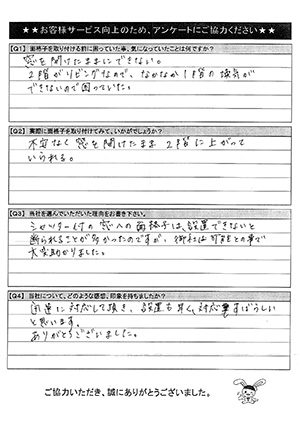 ★★お客様サービス向上のため、アンケートにご協力ください★★
【Q1】面格子を取り付ける前に困っていた事、気になっていたことは何ですか？
窓を開けたままにできない。
2階がリビングなので、なかなか1階の換気が
できないので困っていた。
【Q2】実際に面格子を取り付けてみて、いかがでしょうか？
不安なく窓を開けたまま2階に上がって
いられる。
【Q3】当社を選んでいただいた理由をお書き下さい。
シャッター付の窓への面格子は、設置できないと
断られることが多かったのですが、御社は可能との事で
大変助かりました。
【Q4】当社について、どのような感想、印象を持ちましたか？
迅速に対応して頂き、設置も早く、対応すばらしい
と思います。
ありがとうございました。
ご協力いただき、誠にありがとうございました。